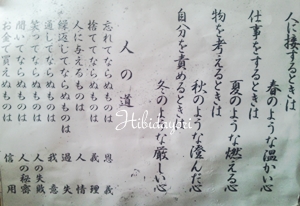 人に接するときは
春のような温かい心
仕事をするときは
夏のような燃える心
物を考えるときは
秋のような澄んだ心
自分を責めるときは
冬のような厳しい心
人の道
忘れてならぬものは 恩義
捨ててならぬものは 義理
人に与えるものは 人情
繰返してならぬものは 過失
通してならぬものは 我意
笑ってならぬものは 人の失敗
聞いてならぬものは 人の秘密
お金で買えぬものは 信用
Hibidayori